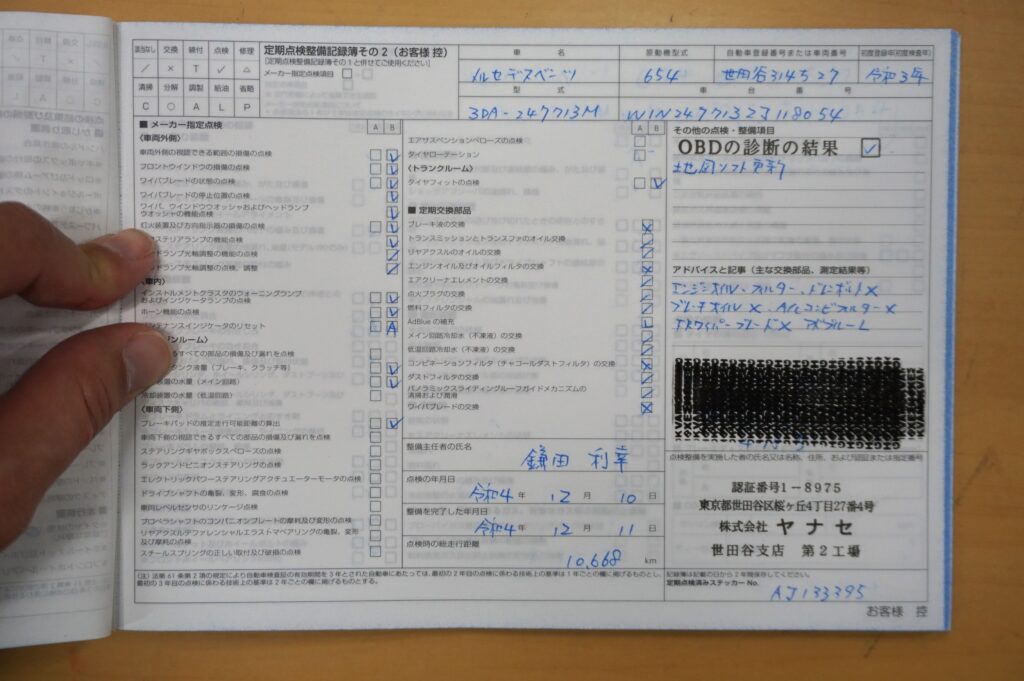 該当なし 交換 締付 点検 修理
／ × T ✓ △
清掃 分解 調整 給油 省略
C ○ A L P
定期点検整備記録簿その2（お客様 控）
［定期点検整備記録簿その1と併せてご使用ください］
メーカー指定点検項目
車 名
メルセデスベンツ
原動機型式
654
自動車登録番号または車両番号
世田谷314さ27
初度登録年(初度検査年)
令和3年
型 式
3DA-247713M
車 台 番 号
W1N2477132J118054
■ メーカー指定点検
A B
〈車両外側〉
車両外側の視認できる範囲の損傷の点検
フロントウインドウの損傷の点検
ワイパブレードの状態の点検
ワイパブレードの停止位置の点検
ワイパ、ウインドウウオッシャおよびヘッドランプ
ウオッシャの機能点検
灯火装置及び方向指示器の損傷の点検
ランプの機能点検
ランプ光軸調整の機能の点検
ランプ光軸調整の点検、調整
〈車内〉
インストルメントクラスタのウォーニングランプ
およびインジケータランプの点検
ホーン機能の点検
メンテナンスインジケータのリセット
すべての部品の損傷及び漏れを点検
タンク液量（ブレーキ、クラッチ等）
装置の水量（メイン回路）
冷却装置の水量（低温回路）
〈車両下側〉
ブレーキパッドの推定走行可能距離の算出
車両下側の視認できるすべての部品の損傷及び漏れを点検
ステアリングギヤボックスベローズの点検
ラックアンドピニオンステアリングの点検
エレクトリックパワーステアリングアクチュエーターモータの点検
ドライブシャフトの亀裂、変形、腐食の点検
車両レベルセンサのリンケージ点検
プロペラシャフトのコンパニオンプレートの摩耗及び変形の点検
リヤアクスルデファレンシャルエラストマベアリングの亀裂、変形
及び摩耗の点検
スチールスプリングの正しい取付及び破損の点検
A B
エアサスペンションベローズの点検
タイヤローテーション
〈トランクルーム〉
タイヤフィットの点検
■ 定期交換部品
ブレーキ液の交換
トランスミッションとトランスファのオイル交換
リヤアクスルのオイルの交換
エンジンオイル及びオイルフィルタの交換
エアクリーナエレメントの交換
点火プラグの交換
燃料フィルタの交換
AdBlue の補充
メイン回路冷却水（不凍液）の交換
低温回路冷却水（不凍液）の交換
コンビネーションフィルタ（チャコールダストフィルタ）の交換
ダストフィルタの交換
パノラミックスライディングルーフガイドメカニズムの
清掃および潤滑
ワイパブレードの交換
整備主任者の氏名
鎌田 利幸
点検の年月日
令和4年 12月 10日
整備を完了した年月日
令和4年 12月 11日
点検時の総走行距離
10,668 km
その他の点検・整備項目
OBDの診断の結果 ✓
地図ソフト更新
アドバイスと記事（主な交換部品、測定結果等）
エンジンオイル・フィルター、ドレンボルト×
ブレーキオイル×、A/Cコンビフィルター×
ワイパーブレード× アドブルーL
点検整備を実施した者の氏名又は名称、住所、および認証または指定番号
認証番号1－8975
東京都世田谷区桜ヶ丘4丁目27番4号
株式会社 ヤナセ
世田谷支店 第2工場
（注）法第 61 条第 2 項の規定により自動車検査証の有効期間を 3 年とされた自動車にあたっては、最初の 2 年目の点検に係わる技術上の基準は 1 年ごとの欄に掲げるものとし、
最初の 3 年目の点検に係わる技術上の基準は 2 年ごとの欄に掲げるものとする。
記録簿は記載の日から 2 年間保存してください。
定期点検済みステッカー No.
AJ133395
お客様 控